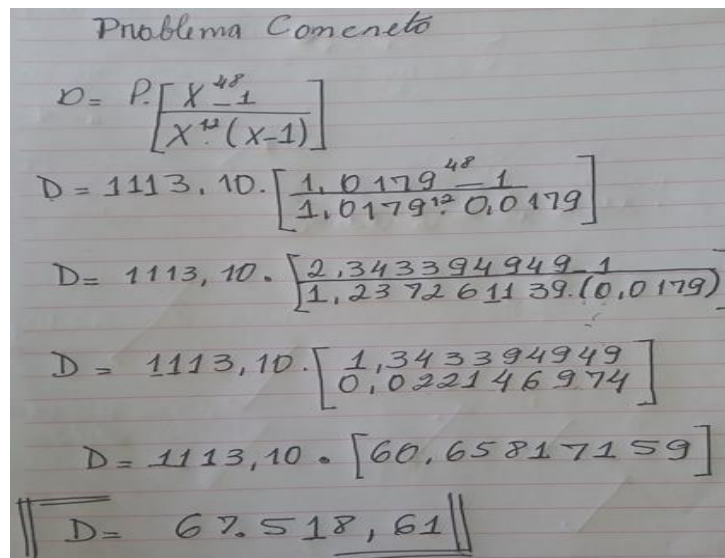 Problema Concreto
D = P. [X^48 - 1 / X^12 . (X-1)]
D = 1113,10. [1,0179^48 - 1 / 1,0179^12 . 0,0179]
D = 1113,10 . [2,343394949 - 1 / 1,237261139.(0,0179)]
D = 1113,10. [1,343394949 / 0,022146974]
D = 1113,10 . [60,65817159]
D = 67.518,61